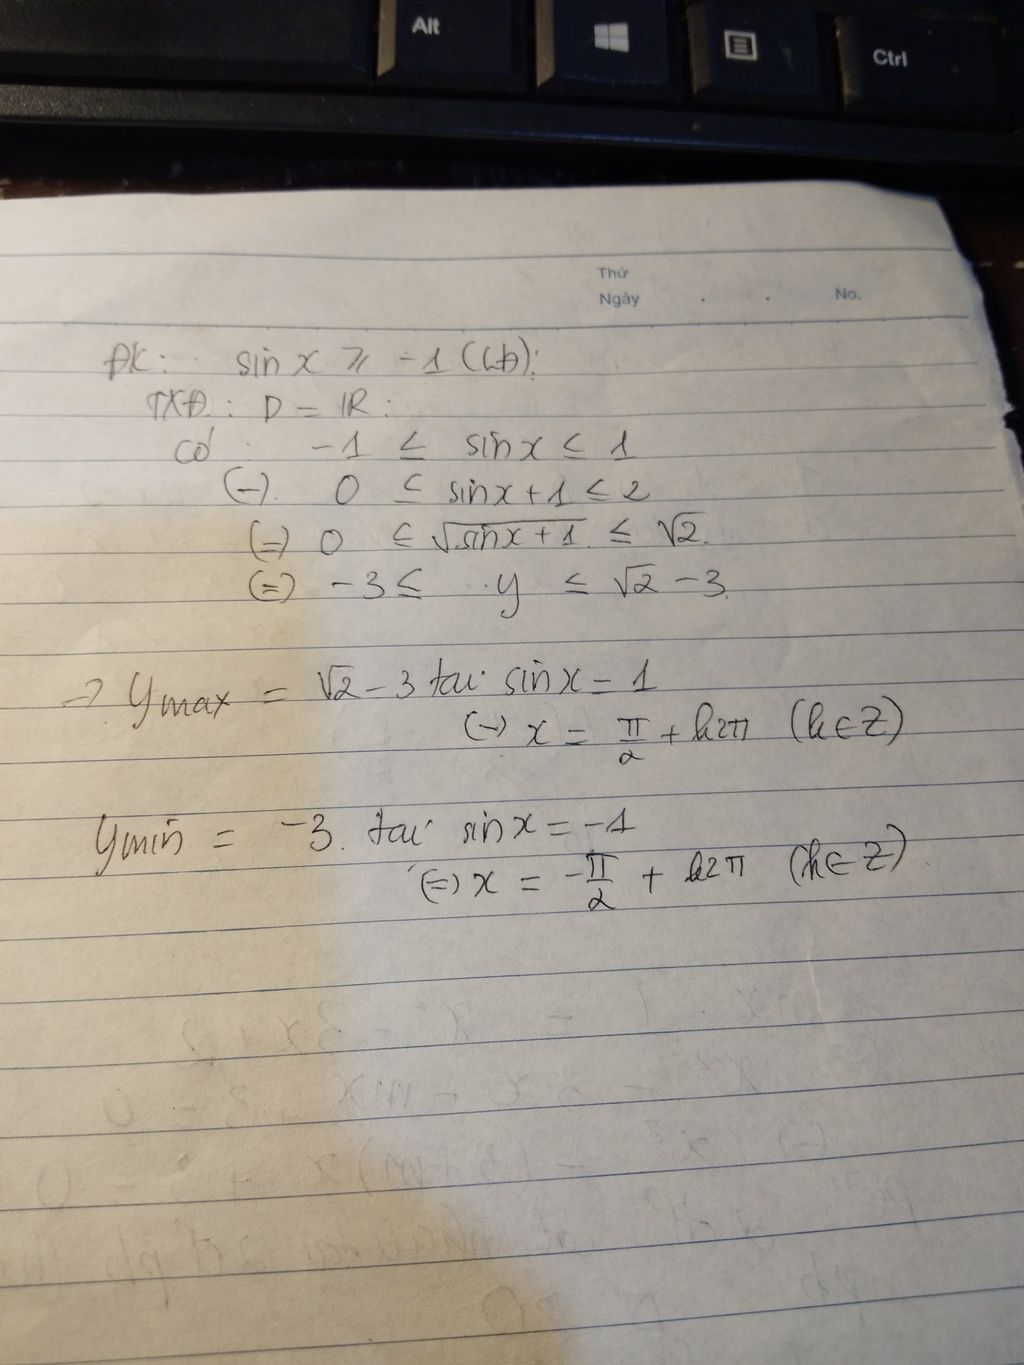 Alt
Ctrl
Thứ
Ngày . . No.
ĐK: sin x ⩾ -1 (lđ):
TXĐ: D = ℝ:
có -1 ≤ sin x ≤ 1
(-) 0 ≤ sin x + 1 ≤ 2
(=) 0 ≤ √(sin x + 1) ≤ √2.
(=) -3 ≤ y ≤ √2 - 3.
→ y max = √2 - 3 tại sin x = 1
(-) x = π/2 + k2π (k ∈ Z)
y min = -3. tại sin x = -1
(=) x = -π/2 + k2π (k ∈ Z)